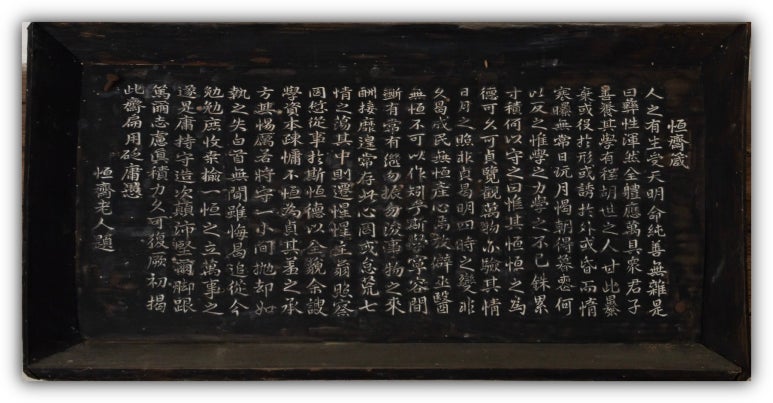 恒齋箴
人之有生受天明命純善無雜是
曰彝性渾然全體應萬具衆君子
是養其學有程胡世之人甘此暴
棄或役於形或誘於外或昏而惰
寒曝無常日玩月愒朝得暮愆何
以反之惟學之力學之不已銖累
寸積何以守之曰惟其恒恒之爲
德可久可貞覽觀萬物亦驗其情
日月之照非貞曷明四時之變非
久曷成民無恒產心爲放辟巫醫
無恒不可以作矧兮斯學寧容間
斷有常有勿勿事物之來
酬接靡遑常存此心罔或怠荒七
情之蕩其中則遷惺惺主翁照察
罔愆從事於斯恒德以全貌余謏
學資本疎慵不恒爲貞其羞之承
方其惕厲若將守一小間抛却如
執之失白首無聞雖悔曷追從今
勉勉庶收桑楡一恒之立萬事之
庸持守造次顚沛堅爾脚跟
篤爾志慮眞積力久可復厥初揭
此齋扁用砭庸
恒齋老人題